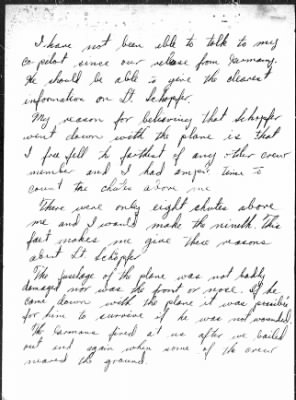 I have not been able to talk to my
co-pilot since our release from Germany.
He should be able to give the clearest
information on Lt. Schopfer.
My reason for believing that Schopfer
went down with the plane is that
I free fell the farthest of any other crew
member and I had ample time to
count the chutes above me.
There were only eight chutes above
me and I would make the nineth. This
fact makes me give these reasons
about Lt. Schopfer.
The fuselage of the plane was not badly
damaged nor was the front or nose. If he
came down with the plane it was possible
for him to survive if he was not wounded.
The Germans fired at us after we bailed
out and again when some of the crew
neared the ground.